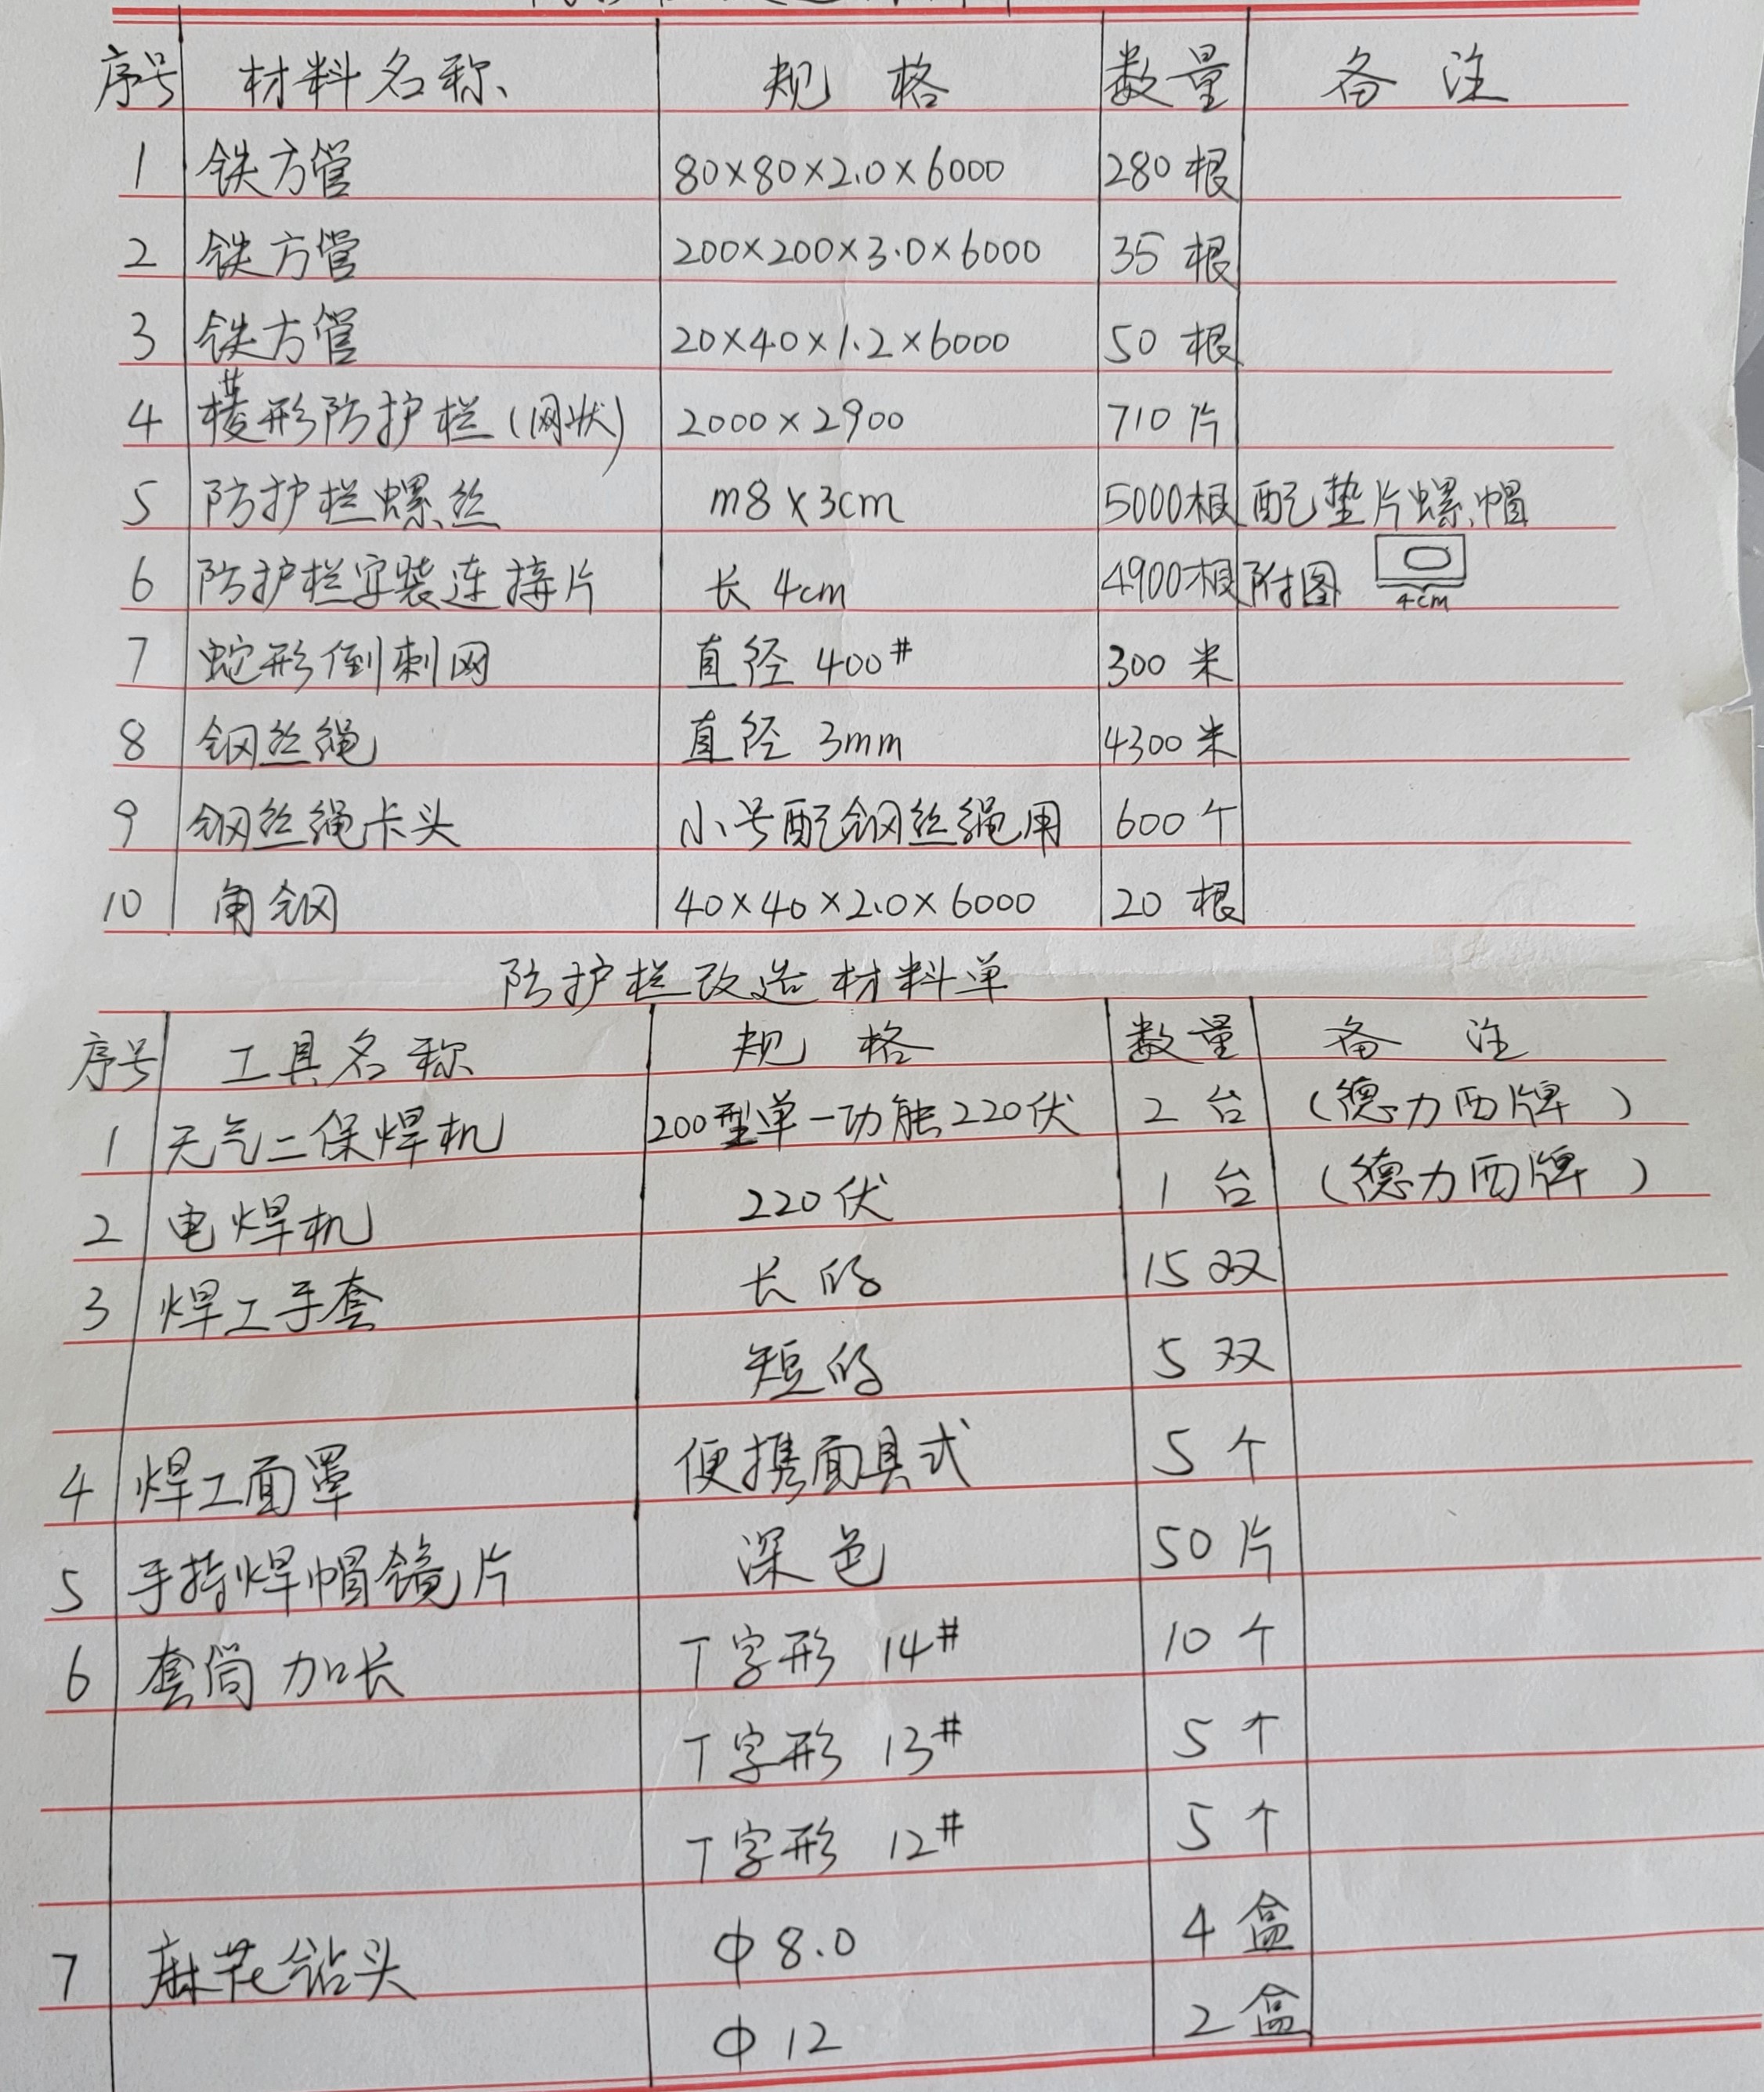 序号 材料名称 规格 数量 备注
1 铁方管 80×80×2.0×6000 280根
2 铁方管 200×200×3.0×6000 35根
3 铁方管 20×40×1.2×6000 50根
4 菱形防护栏(网状) 2000×2900 710片
5 防护栏螺丝 m8×3cm 5000根 配垫片螺帽
6 防护栏安装连接片 长4cm 4900根 附图 4cm
7 蛇形倒刺网 直径400# 300米
8 钢丝绳 直径3mm 4300米
9 钢丝绳卡头 小号配钢丝绳用 600个
10 角钢 40×40×2.0×6000 20根
防护栏改造材料单
序号 工具名称 规格 数量 备注
1 无气二保焊机 200型单一功能220伏 2台 (德力西牌)
2 电焊机 220伏 1台 (德力西牌)
3 焊工手套 长的 15双
短的 5双
4 焊工面罩 便携面具式 5个
5 手持焊帽镜片 深色 50片
6 套筒加长 T字形 14# 10个
T字形 13# 5个
T字形 12# 5个
7 麻花钻头 φ8.0 4盒
φ12 2盒